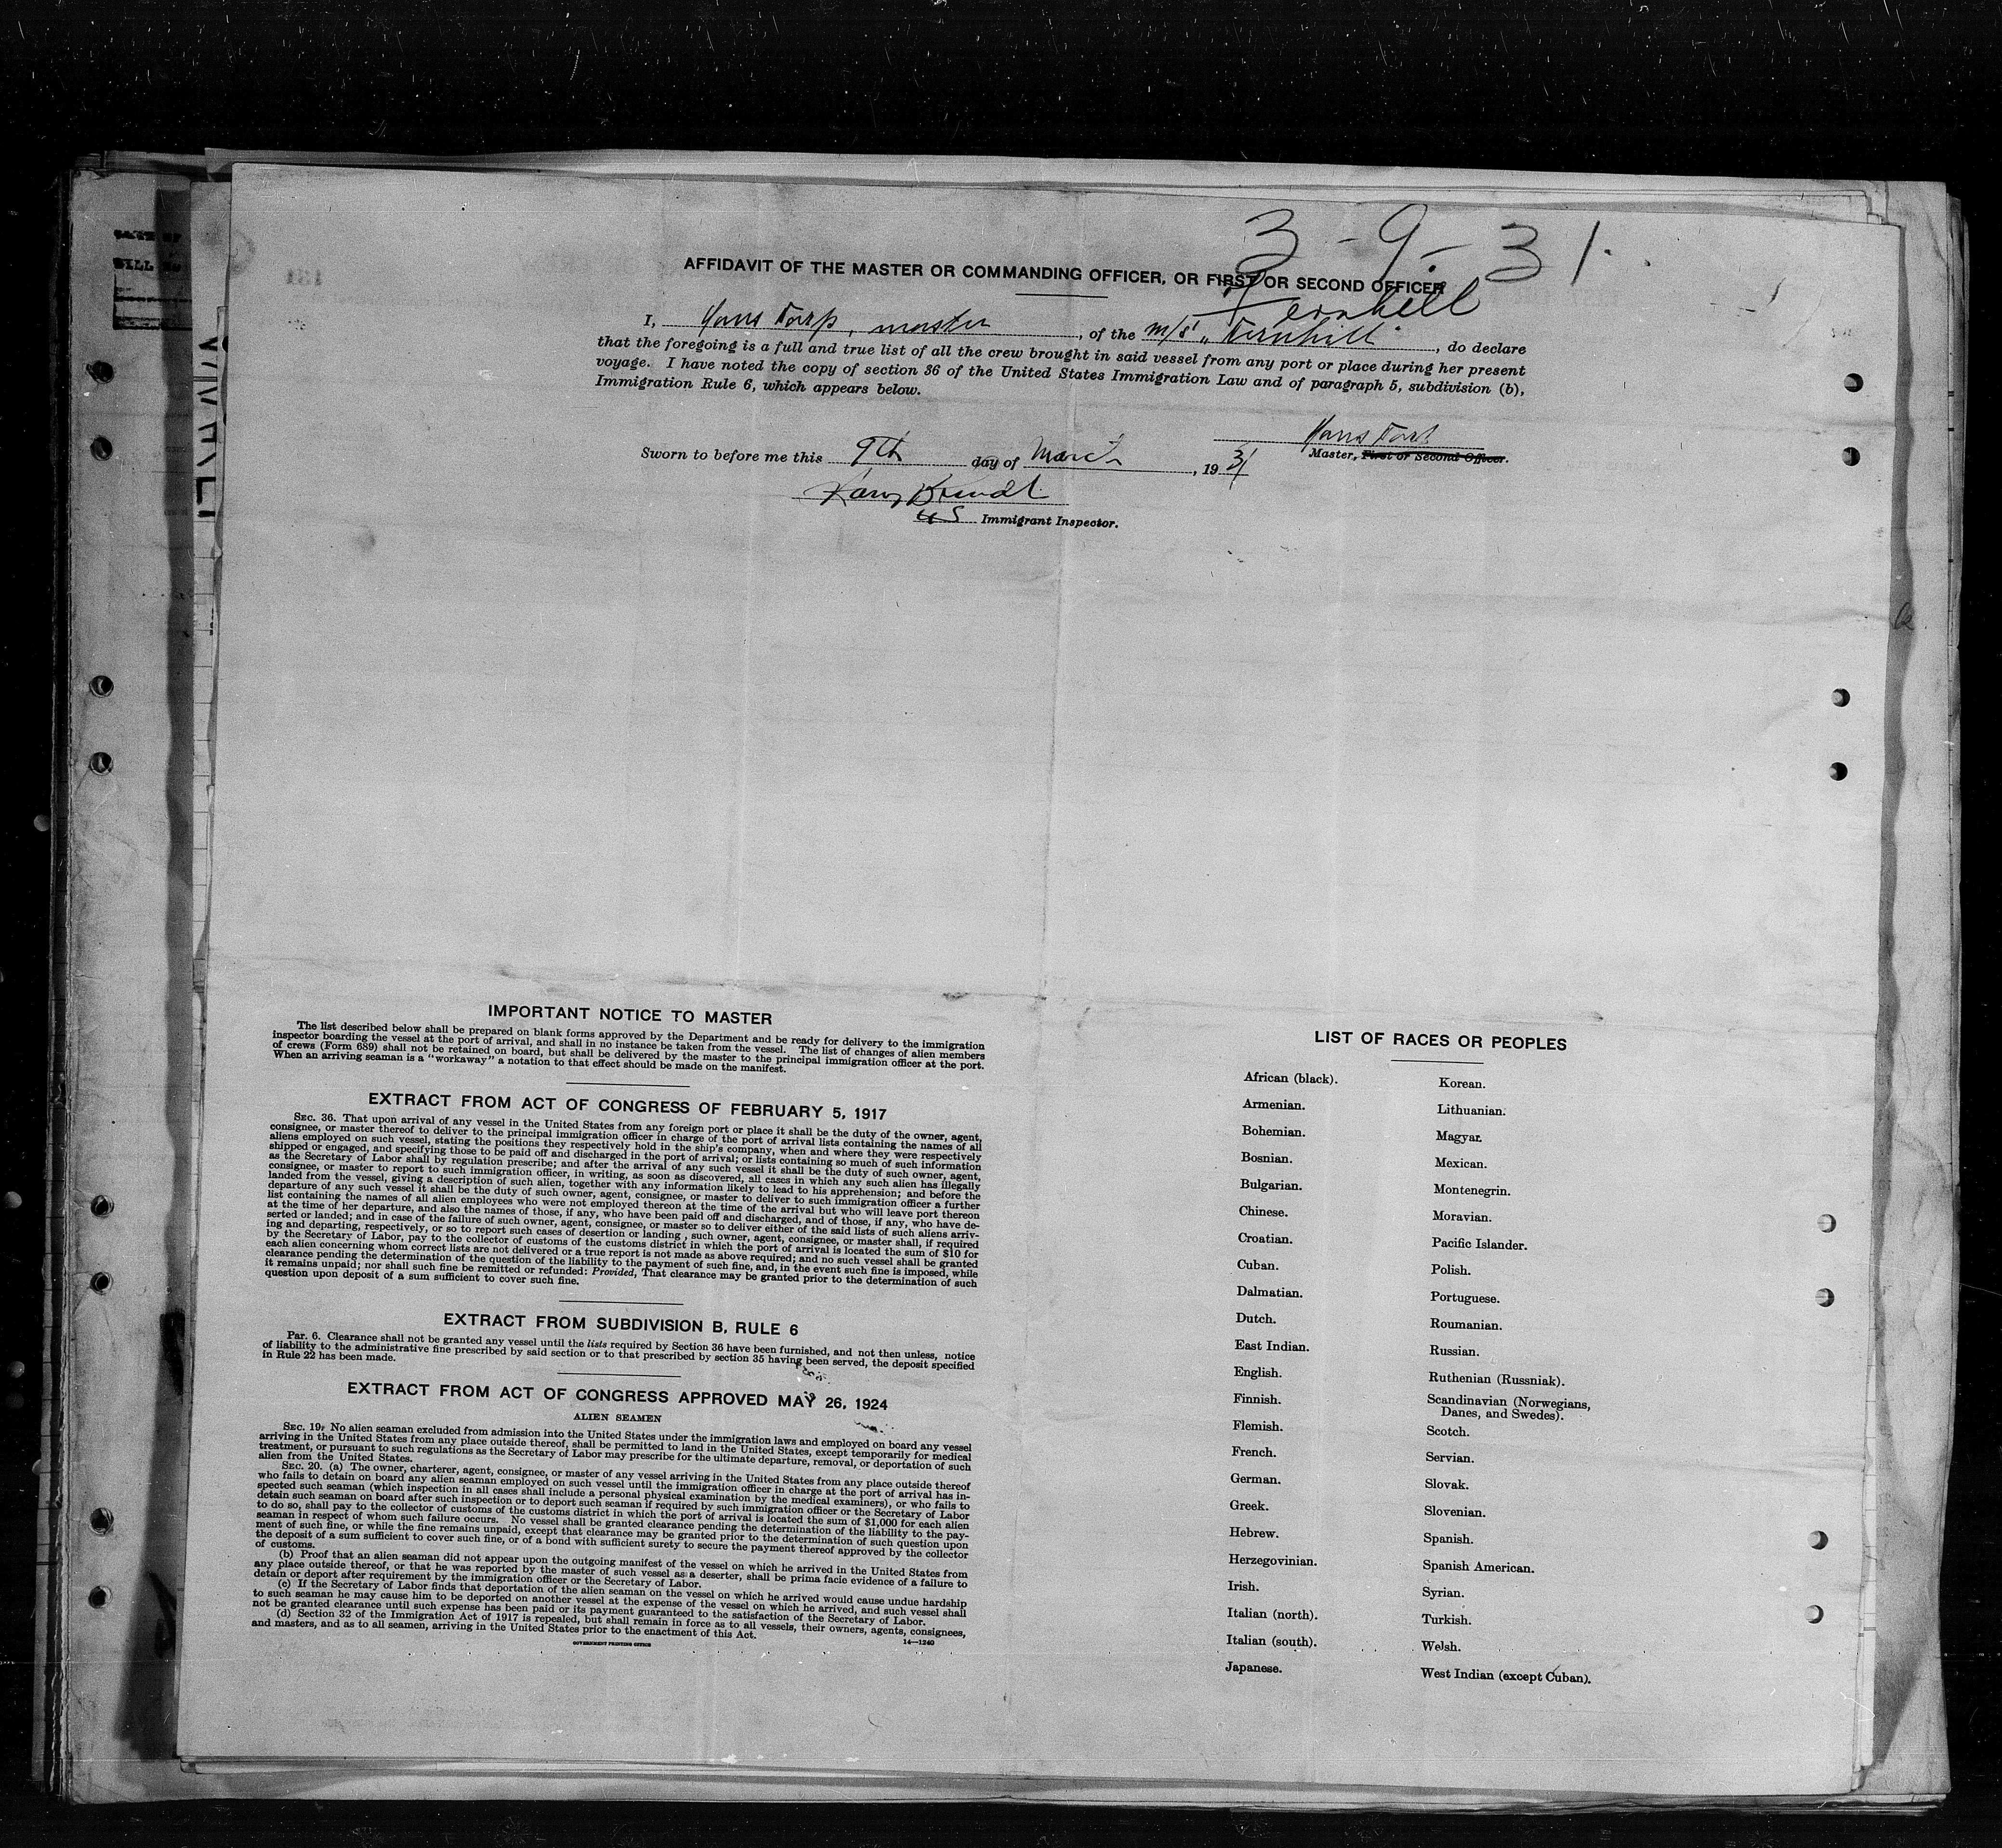 3-9-31.
Fernhill
AFFIDAVIT OF THE MASTER OR COMMANDING OFFICER, OR FIRST OR SECOND OFFICER
I, Hans Torp, master, of the m/s "Fernhill", do declare
that the foregoing is a full and true list of all the crew brought in said vessel from any port or place during her present
voyage. I have noted the copy of section 36 of the United States Immigration Law and of paragraph 5, subdivision (b),
Immigration Rule 6, which appears below.
Hans Torp
Master, First or Second Officer.
Sworn to before me this 9th day of March, 1931
US Immigrant Inspector.
IMPORTANT NOTICE TO MASTER
The list described below shall be prepared on blank forms approved by the Department and be ready for delivery to the immigration
inspector boarding the vessel at the port of arrival, and shall in no instance be taken from the vessel. The list of changes of alien members
of crews (Form 689) shall not be retained on board, but shall be delivered by the master to the principal immigration officer at the port.
When an arriving seaman is a "workaway" a notation to that effect should be made on the manifest.
EXTRACT FROM ACT OF CONGRESS OF FEBRUARY 5, 1917
SEC. 36. That upon arrival of any vessel in the United States from any foreign port or place it shall be the duty of the owner, agent,
consignee, or master thereof to deliver to the principal immigration officer in charge of the port of arrival lists containing the names of all
aliens employed on such vessel, stating the positions they respectively hold in the ship's company, when and where they were respectively
shipped or engaged, and specifying those to be paid off and discharged in the port of arrival; or lists containing so much of such information
as the Secretary of Labor shall by regulation prescribe; and after the arrival of any such vessel it shall be the duty of such owner, agent,
consignee, or master to report to such immigration officer, in writing, as soon as discovered, all cases in which any such alien has illegally
landed from the vessel, giving a description of such alien, together with any information likely to lead to his apprehension; and before the
departure of any such vessel it shall be the duty of such owner, agent, consignee, or master to deliver to such immigration officer a further
list containing the names of all alien employees who were not employed thereon at the time of the arrival but who will leave port thereon
at the time of her departure, and also the names of those, if any, who have been paid off and discharged, and of those, if any, who have de-
serted or landed; and in case of the failure of such owner, agent, consignee, or master so to deliver either of the said lists of such aliens arriv-
ing and departing, respectively, or so to report such cases of desertion or landing , such owner, agent, consignee, or master shall, if required
by the Secretary of Labor, pay to the collector of customs of the customs district in which the port of arrival is located the sum of $10 for
each alien concerning whom correct lists are not delivered or a true report is not made as above required; and no such vessel shall be granted
clearance pending the determination of the question of the liability to the payment of such fine, and, in the event such fine is imposed, while
it remains unpaid; nor shall such fine be remitted or refunded: Provided, That clearance may be granted prior to the determination of such
question upon deposit of a sum sufficient to cover such fine.
EXTRACT FROM SUBDIVISION B, RULE 6
Par. 6. Clearance shall not be granted any vessel until the lists required by Section 36 have been furnished, and not then unless, notice
of liability to the administrative fine prescribed by said section or to that prescribed by section 35 having been served, the deposit specified
in Rule 22 has been made.
EXTRACT FROM ACT OF CONGRESS APPROVED MAY 26, 1924
ALIEN SEAMEN
SEC. 19. No alien seaman excluded from admission into the United States under the immigration laws and employed on board any vessel
arriving in the United States from any place outside thereof, shall be permitted to land in the United States, except temporarily for medical
treatment, or pursuant to such regulations as the Secretary of Labor may prescribe for the ultimate departure, removal, or deportation of such
alien from the United States.
SEC. 20. (a) The owner, charterer, agent, consignee, or master of any vessel arriving in the United States from any place outside thereof
who fails to detain on board any alien seaman employed on such vessel until the immigration officer in charge at the port of arrival has in-
spected such seaman (which inspection in all cases shall include a personal physical examination by the medical examiners), or who fails to
detain such seaman on board after such inspection or to deport such seaman if required by such immigration officer or the Secretary of Labor
to do so, shall pay to the collector of customs of the customs district in which the port of arrival is located the sum of $1,000 for each alien
seaman in respect of whom such failure occurs. No vessel shall be granted clearance pending the determination of the liability to the pay-
ment of such fine, or while the fine remains unpaid, except that clearance may be granted prior to the determination of such question upon
the deposit of a sum sufficient to cover such fine, or of a bond with sufficient surety to secure the payment thereof approved by the collector
of customs.
(b) Proof that an alien seaman did not appear upon the outgoing manifest of the vessel on which he arrived in the United States from
any place outside thereof, or that he was reported by the master of such vessel as a deserter, shall be prima facie evidence of a failure to
detain or deport after requirement by the immigration officer or the Secretary of Labor.
(c) If the Secretary of Labor finds that deportation of the alien seaman on the vessel on which he arrived would cause undue hardship
to such seaman he may cause him to be deported on another vessel at the expense of the vessel on which he arrived, and such vessel shall
not be granted clearance until such expense has been paid or its payment guaranteed to the satisfaction of the Secretary of Labor.
(d) Section 32 of the Immigration Act of 1917 is repealed, but shall remain in force as to all vessels, their owners, agents, consignees,
and masters, and as to all seamen, arriving in the United States prior to the enactment of this Act.
GOVERNMENT PRINTING OFFICE 14—1240
LIST OF RACES OR PEOPLES
African (black).
Armenian.
Bohemian.
Bosnian.
Bulgarian.
Chinese.
Croatian.
Cuban.
Dalmatian.
Dutch.
East Indian.
English.
Finnish.
Flemish.
French.
German.
Greek.
Hebrew.
Herzegovinian.
Irish.
Italian (north).
Italian (south).
Japanese.
Korean.
Lithuanian.
Magyar.
Mexican.
Montenegrin.
Moravian.
Pacific Islander.
Polish.
Portuguese.
Roumanian.
Russian.
Ruthenian (Russniak).
Scandinavian (Norwegians,
Danes, and Swedes).
Scotch.
Servian.
Slovak.
Slovenian.
Spanish.
Spanish American.
Syrian.
Turkish.
Welsh.
West Indian (except Cuban).